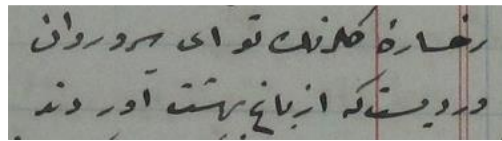 رخساره گلرنگ تو ای سرو روان
وردیست که از باغ بهشت آوردند